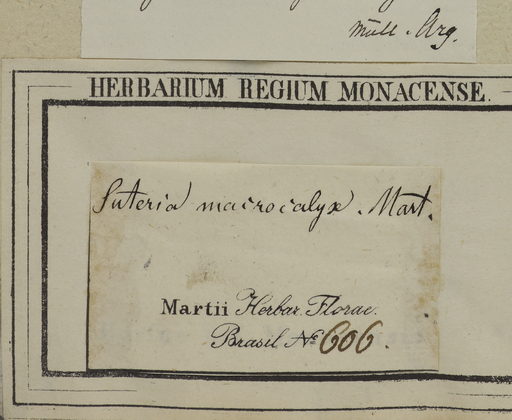 Müll. Arg.
HERBARIUM REGIUM MONACENSE.
Suteria macrocalyx. Mart.
Martii Herbar. Florae.
Brasil. No 606.